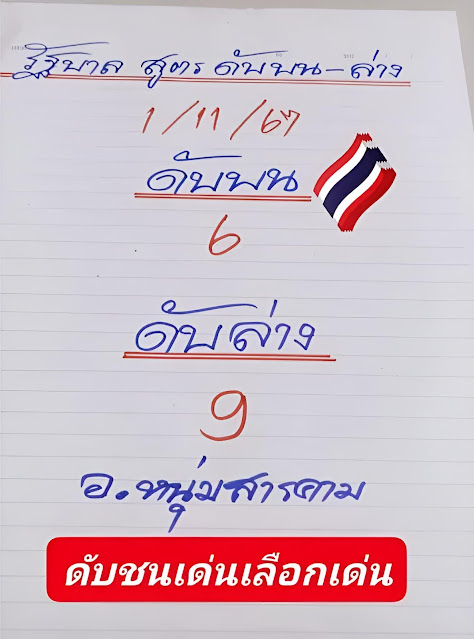 รัฐบาล สูตร ดับบน-ล่าง
1/11/67
ดับบน
6
ดับล่าง
9
อ.หนุ่มสารคาม
ดับชนเด่นเลือกเด่น